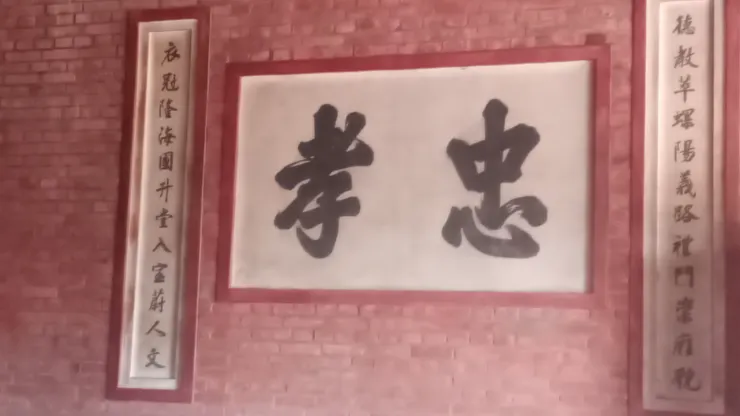 德教華螺陽義路禮門崇雅範
忠孝
衣冠隆海國升堂入室蔚人文